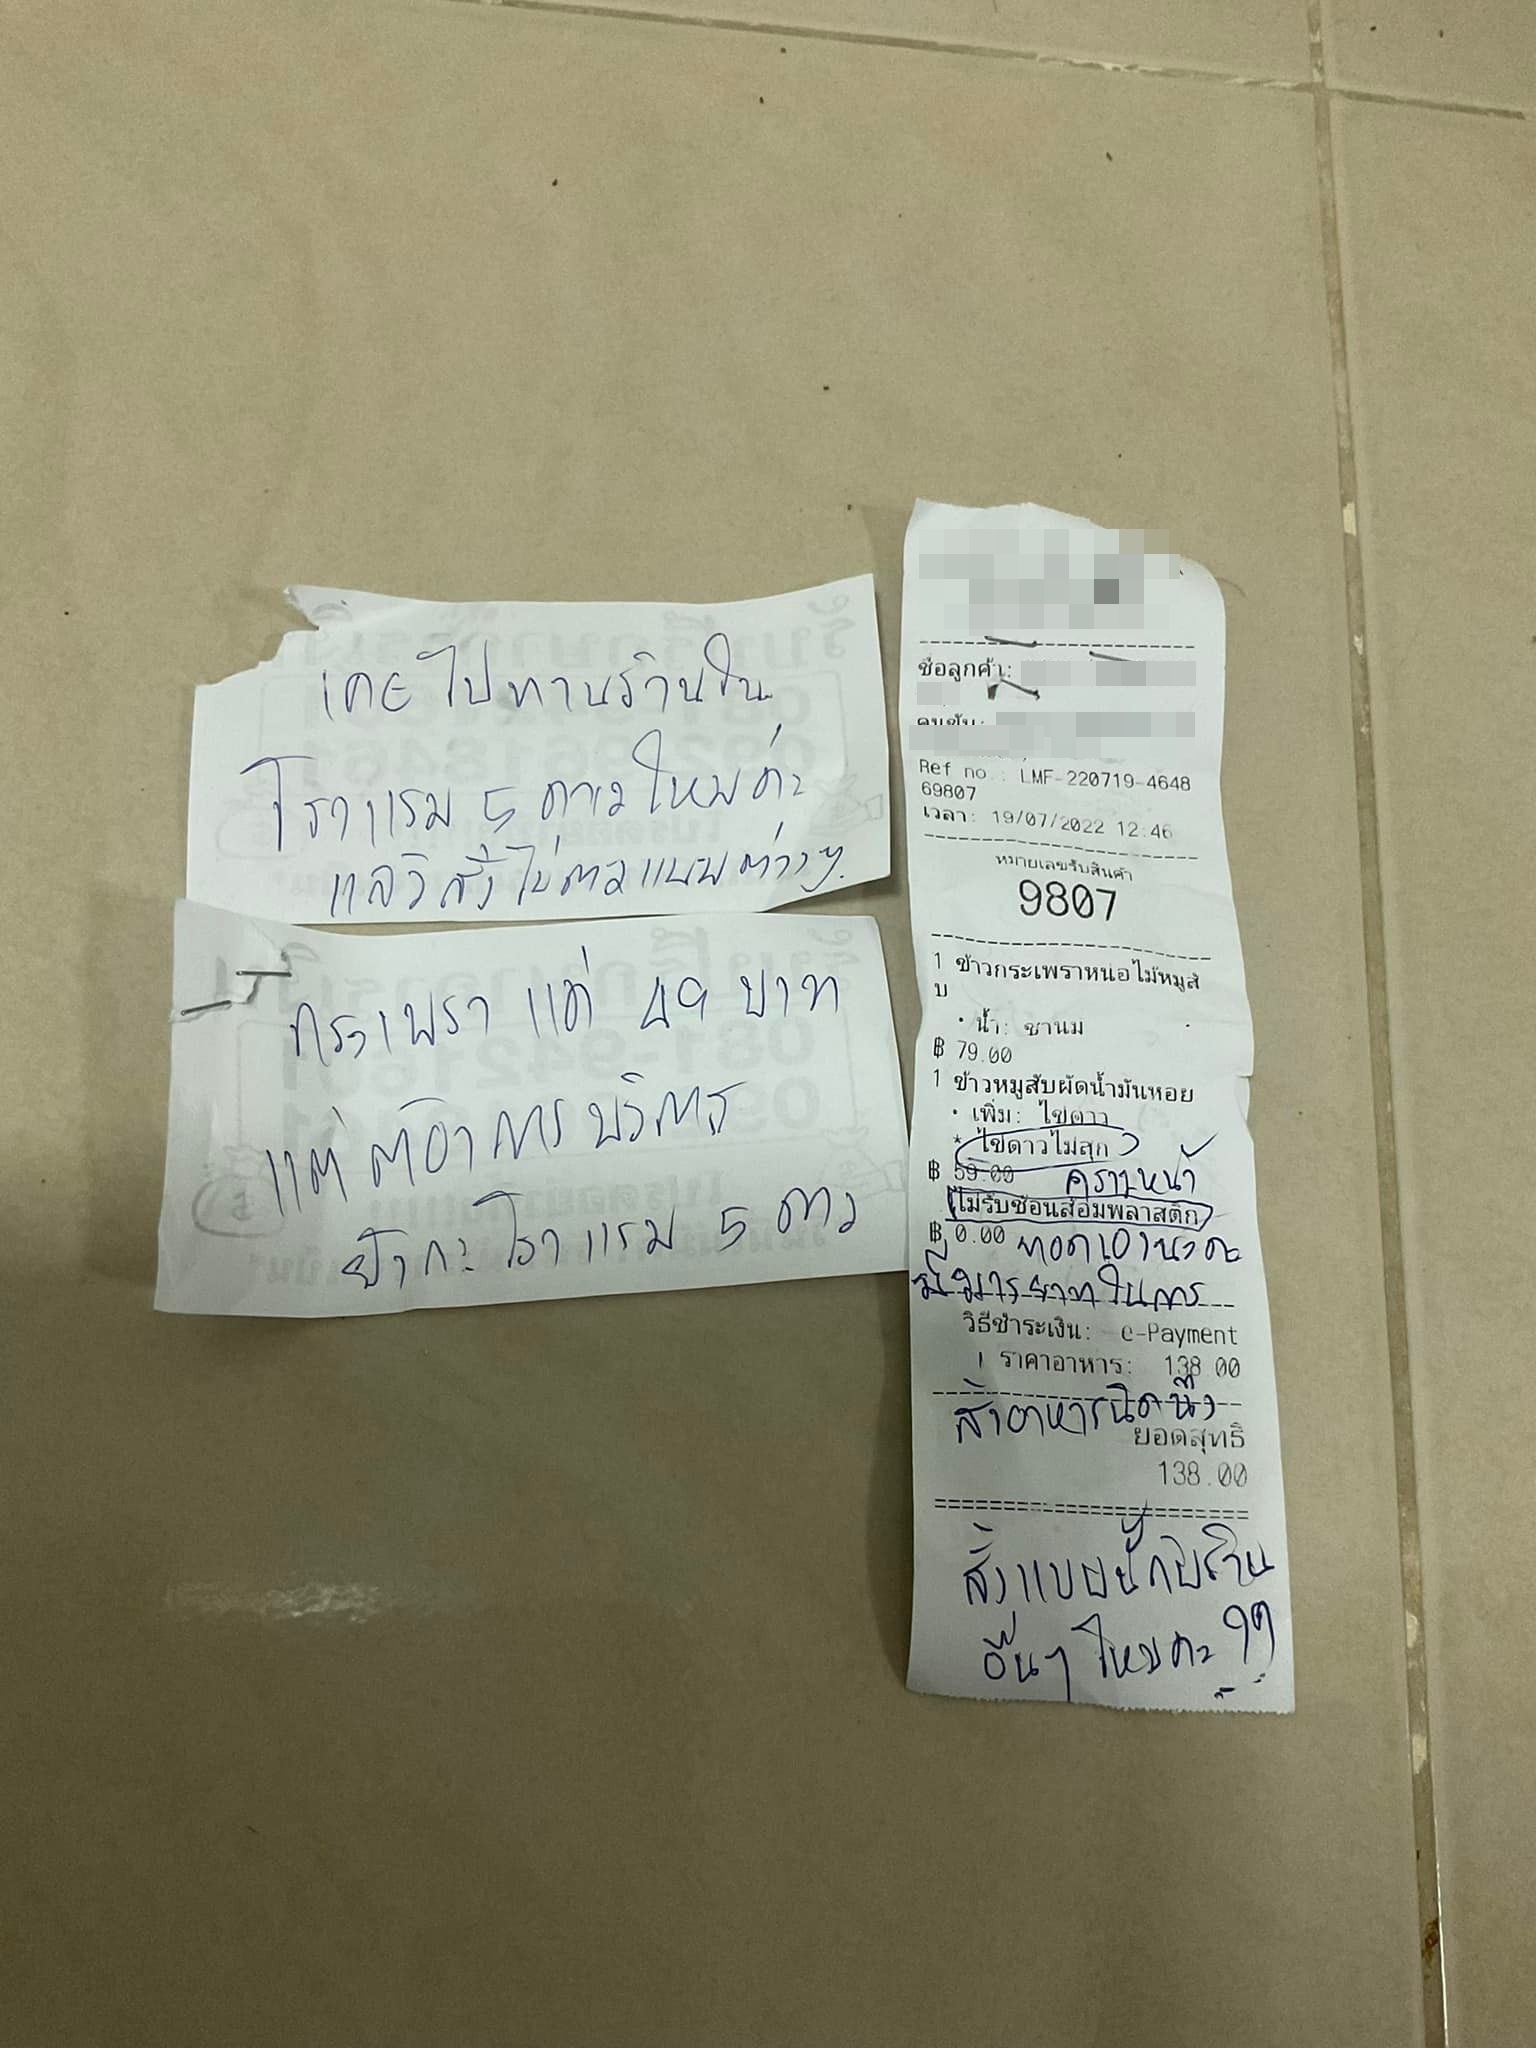 เคยไปทานร้านใน
โรงแรม 5 ดาวไหมค่ะ
แล้วสั่งไข่ดาวแบบต่างๆ
กระเพรา แค่ 49 บาท
แต่ต้องการบริการ
ยังกะโรงแรม 5 ดาว
ชื่อลูกค้า:
คนขับ:
Ref no.: LMF-220719-4648
69807
เวลา: 19/07/2022 12:46
หมายเลขรับสินค้า
9807
1 ข้าวกระเพราหน่อไม้หมูสั
บ
• น้ำ: ชานม
฿ 79.00
1 ข้าวหมูสับผัดน้ำมันหอย
• เพิ่ม: ไข่ดาว
* ไข่ดาวไม่สุก
฿ 59.00 คราวหน้า
ไม่รับช้อนส้อมพลาสติก
฿ 0.00 ทอดเอานะคะ
มีมารยาทในการ
วิธีชำระเงิน: e-Payment
ราคาอาหาร: 138.00
สั่งอาหารนิดนึง
ยอดสุทธิ
138.00
สั่งแบบนี้กับร้าน
อื่นๆ ไหมคะ ??